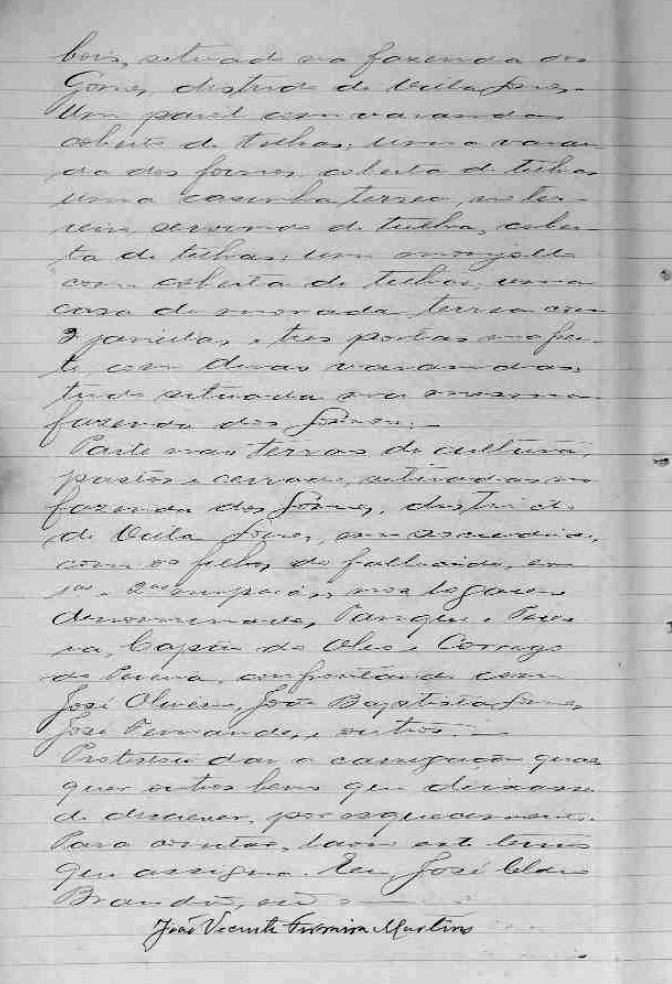 bois, situado na fazenda dos
Gomes, districto de Villa Gomes.
Um paiol com varandas
coberto de telhas; uma varan
da dos fornos, coberta de telhas
uma casinha terrea, no ter-
reiro, servindo de tulha, cober-
ta de telhas; um monjollo
com coberta de telhas; uma
casa de morada terrea com
janellas, e tres portas na fren-
te com duas varandas,
tudo situada na mesma
fazenda dos Gomes.
Parte nas terras de cultura,
pastos e cerrado, situadas na
fazenda dos Gomes, districto
de Villa Gomes, em
com os filhos do fallecido, em
nos logares
denominados, Tanque,
Capão do Oleo e Corrego
do confrontando com
José Oliveira, João Baptista Gomes,
José Fernandes, e outros.
Protestou dar a carregação quaes
quer outros bens que deixasse
de descrever, por esquecimento.
Para constar, lavro este termo
que assigna. Eu, José
Brandão,
João Vicente Firmino Martins